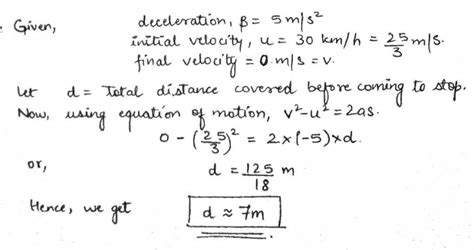 Given, deceleration, β = 5 m/s²
initial velocity, u = 30 km/h = 25/3 m/s.
final velocity = 0 m/s = v.
Let d = Total distance covered before coming to stop.
Now, using equation of motion, v²-u² = 2as.
0 - (25/3)² = 2×(-5)×d.
or, d = 125/18 m
Hence, we get d ≈ 7m